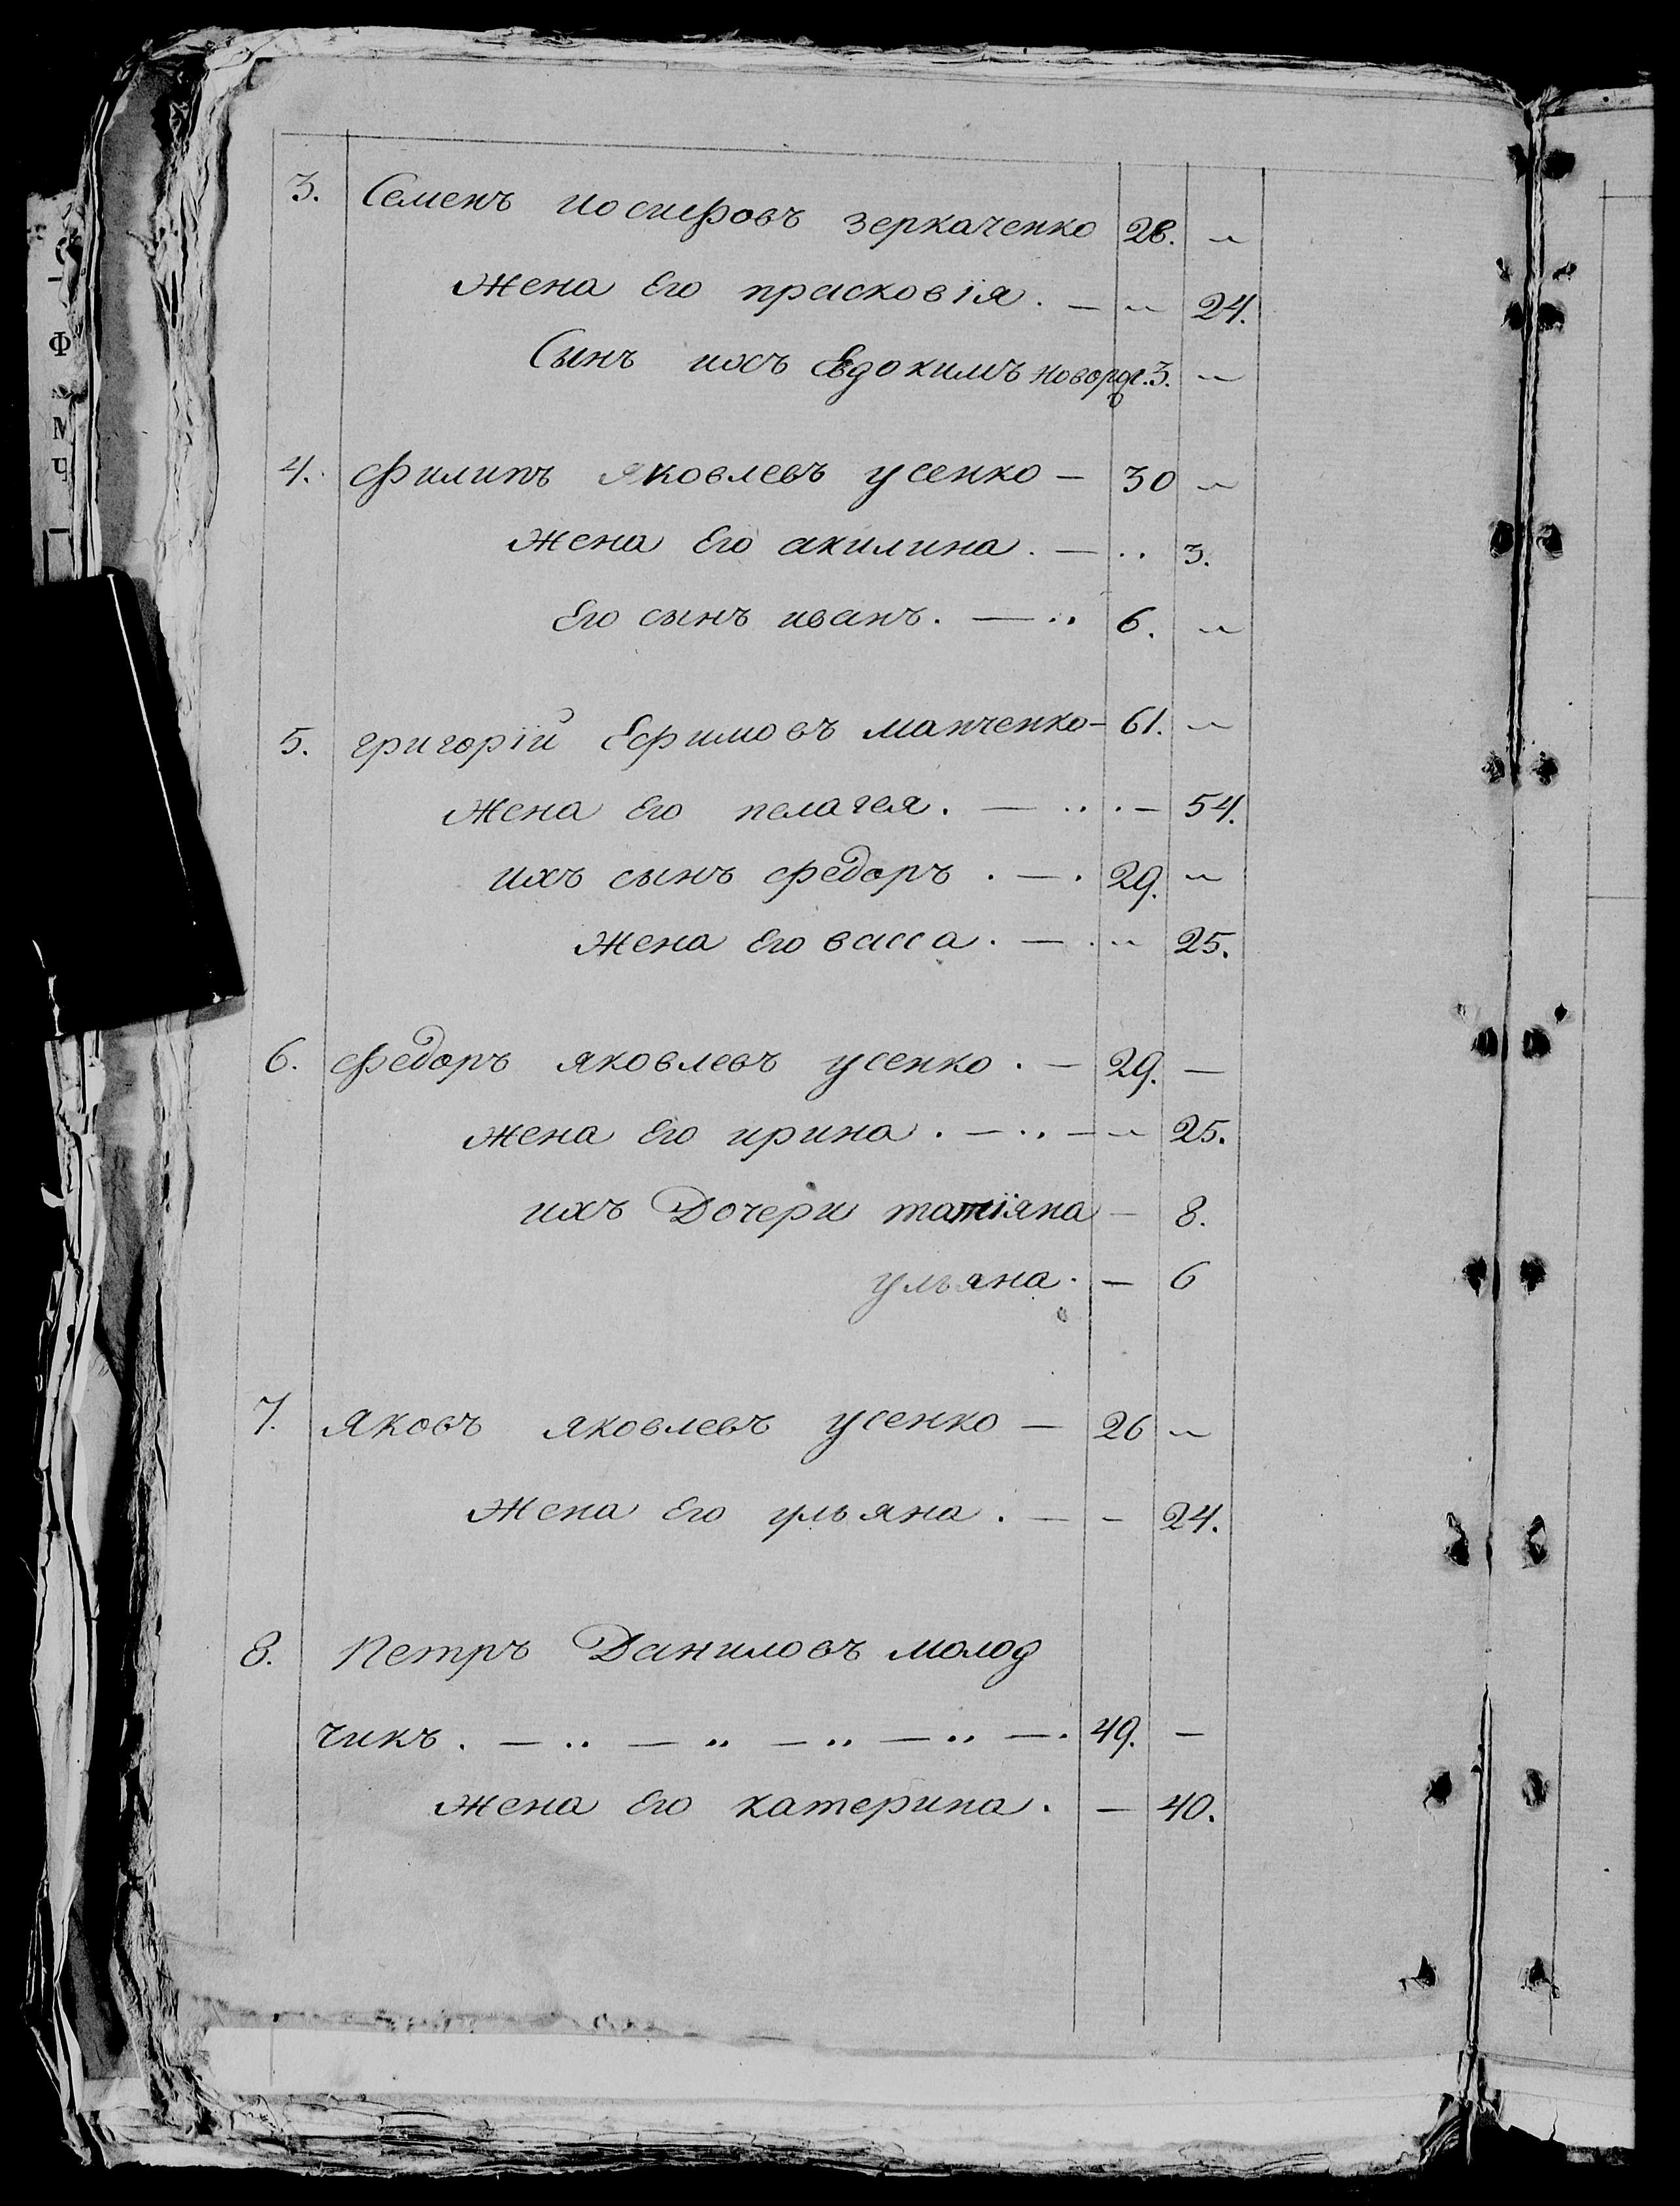 3. Семенъ иосифовъ зеркаченко 28. „
Жена Его прасковія. — „ 24.
Сынъ ихъ Евдокимъ новорд. 3. „
4. филипъ яковлевъ усенко — 30 „
Жена Его акилина. — .. 3.
Его сынъ иванъ. — .. 6. „
5. григорій Ефимовъ манченко — 61. „
Жена Его пелагея. — .. . — 54.
ихъ сынъ федоръ . — . 29. „
Жена Его васса . — . „ 25.
6. федоръ яковлевъ усенко . — 29. —
жена Его ирина . — .. — „ 25.
ихъ Дочери татіяна — 8.
ульяна . — 6
7. яковъ яковлевъ усенко — 26 „
Жена Его ульяна . — - 24.
8. Петръ Даниловъ молод
чикъ . — .. — .. — .. — .. — . 49. —
жена Его катерина . — 40.